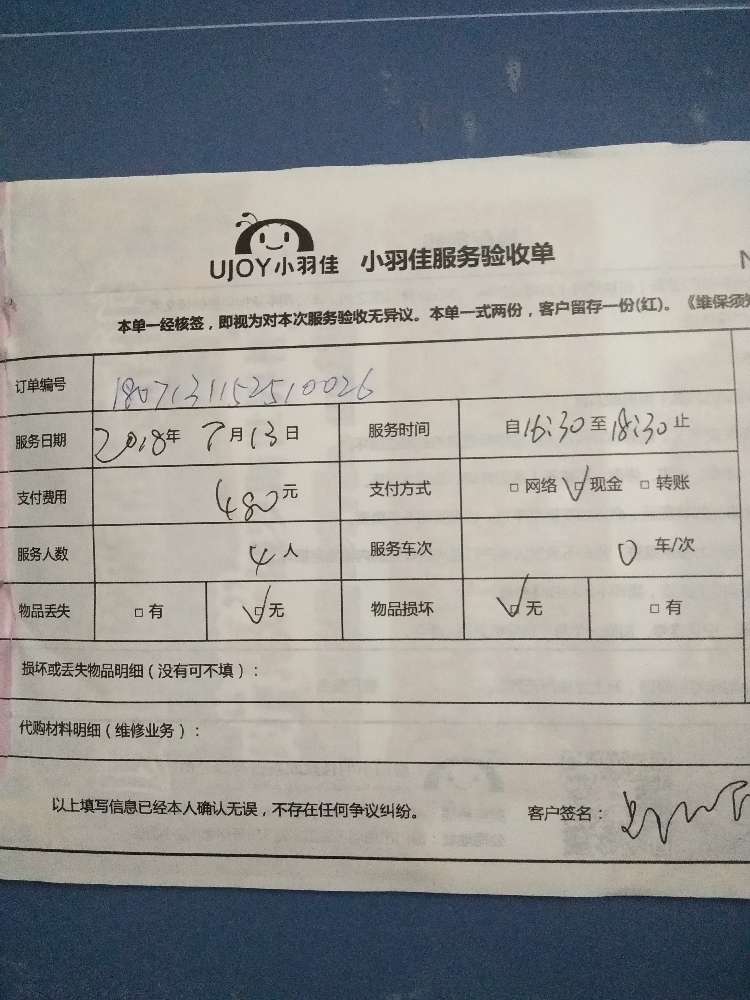 UJOY小羽佳 小羽佳服务验收单 N
本单一经核签，即视为对本次服务验收无异议。本单一式两份，客户留存一份(红)。《维保须知
订单编号 1807131152510026
服务日期 2018年 7月13日 服务时间 自16:30至18:30止
支付费用 480元 支付方式 □ 网络 ☑现金 □ 转账
服务人数 4人 服务车次 0 车/次
物品丢失 □ 有 ☑无 物品损坏 ☑无 □ 有
损坏或丢失物品明细（没有可不填）：
代购材料明细（维修业务）：
以上填写信息已经本人确认无误，不存在任何争议纠纷。 客户签名：